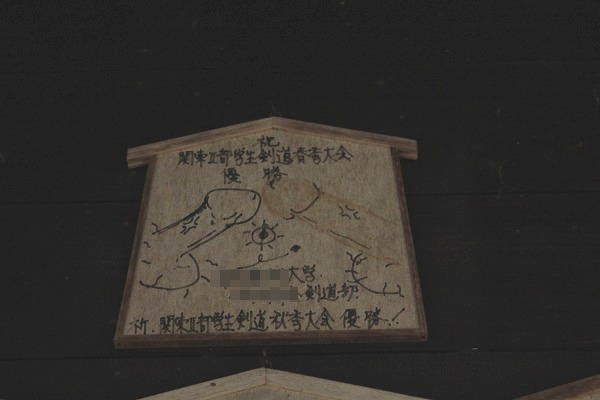 祝
関東Ⅱ部学生剣道春季大会
優勝
大学
剣道部
祈 関東Ⅱ部学生剣道秋季大会優勝!!